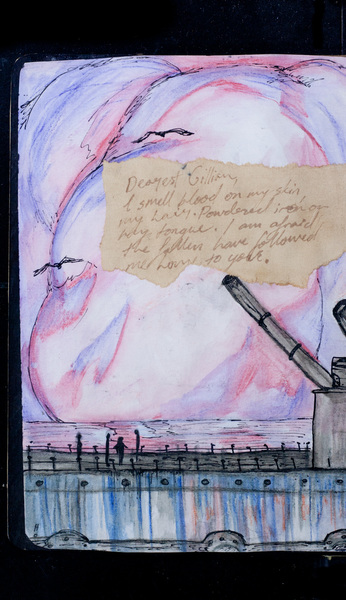 Dearest Gillian,
I smell blood on my skin
my hair. Powdered iron on
my tongue. I am afraid
the fallen have followed
me home to you.